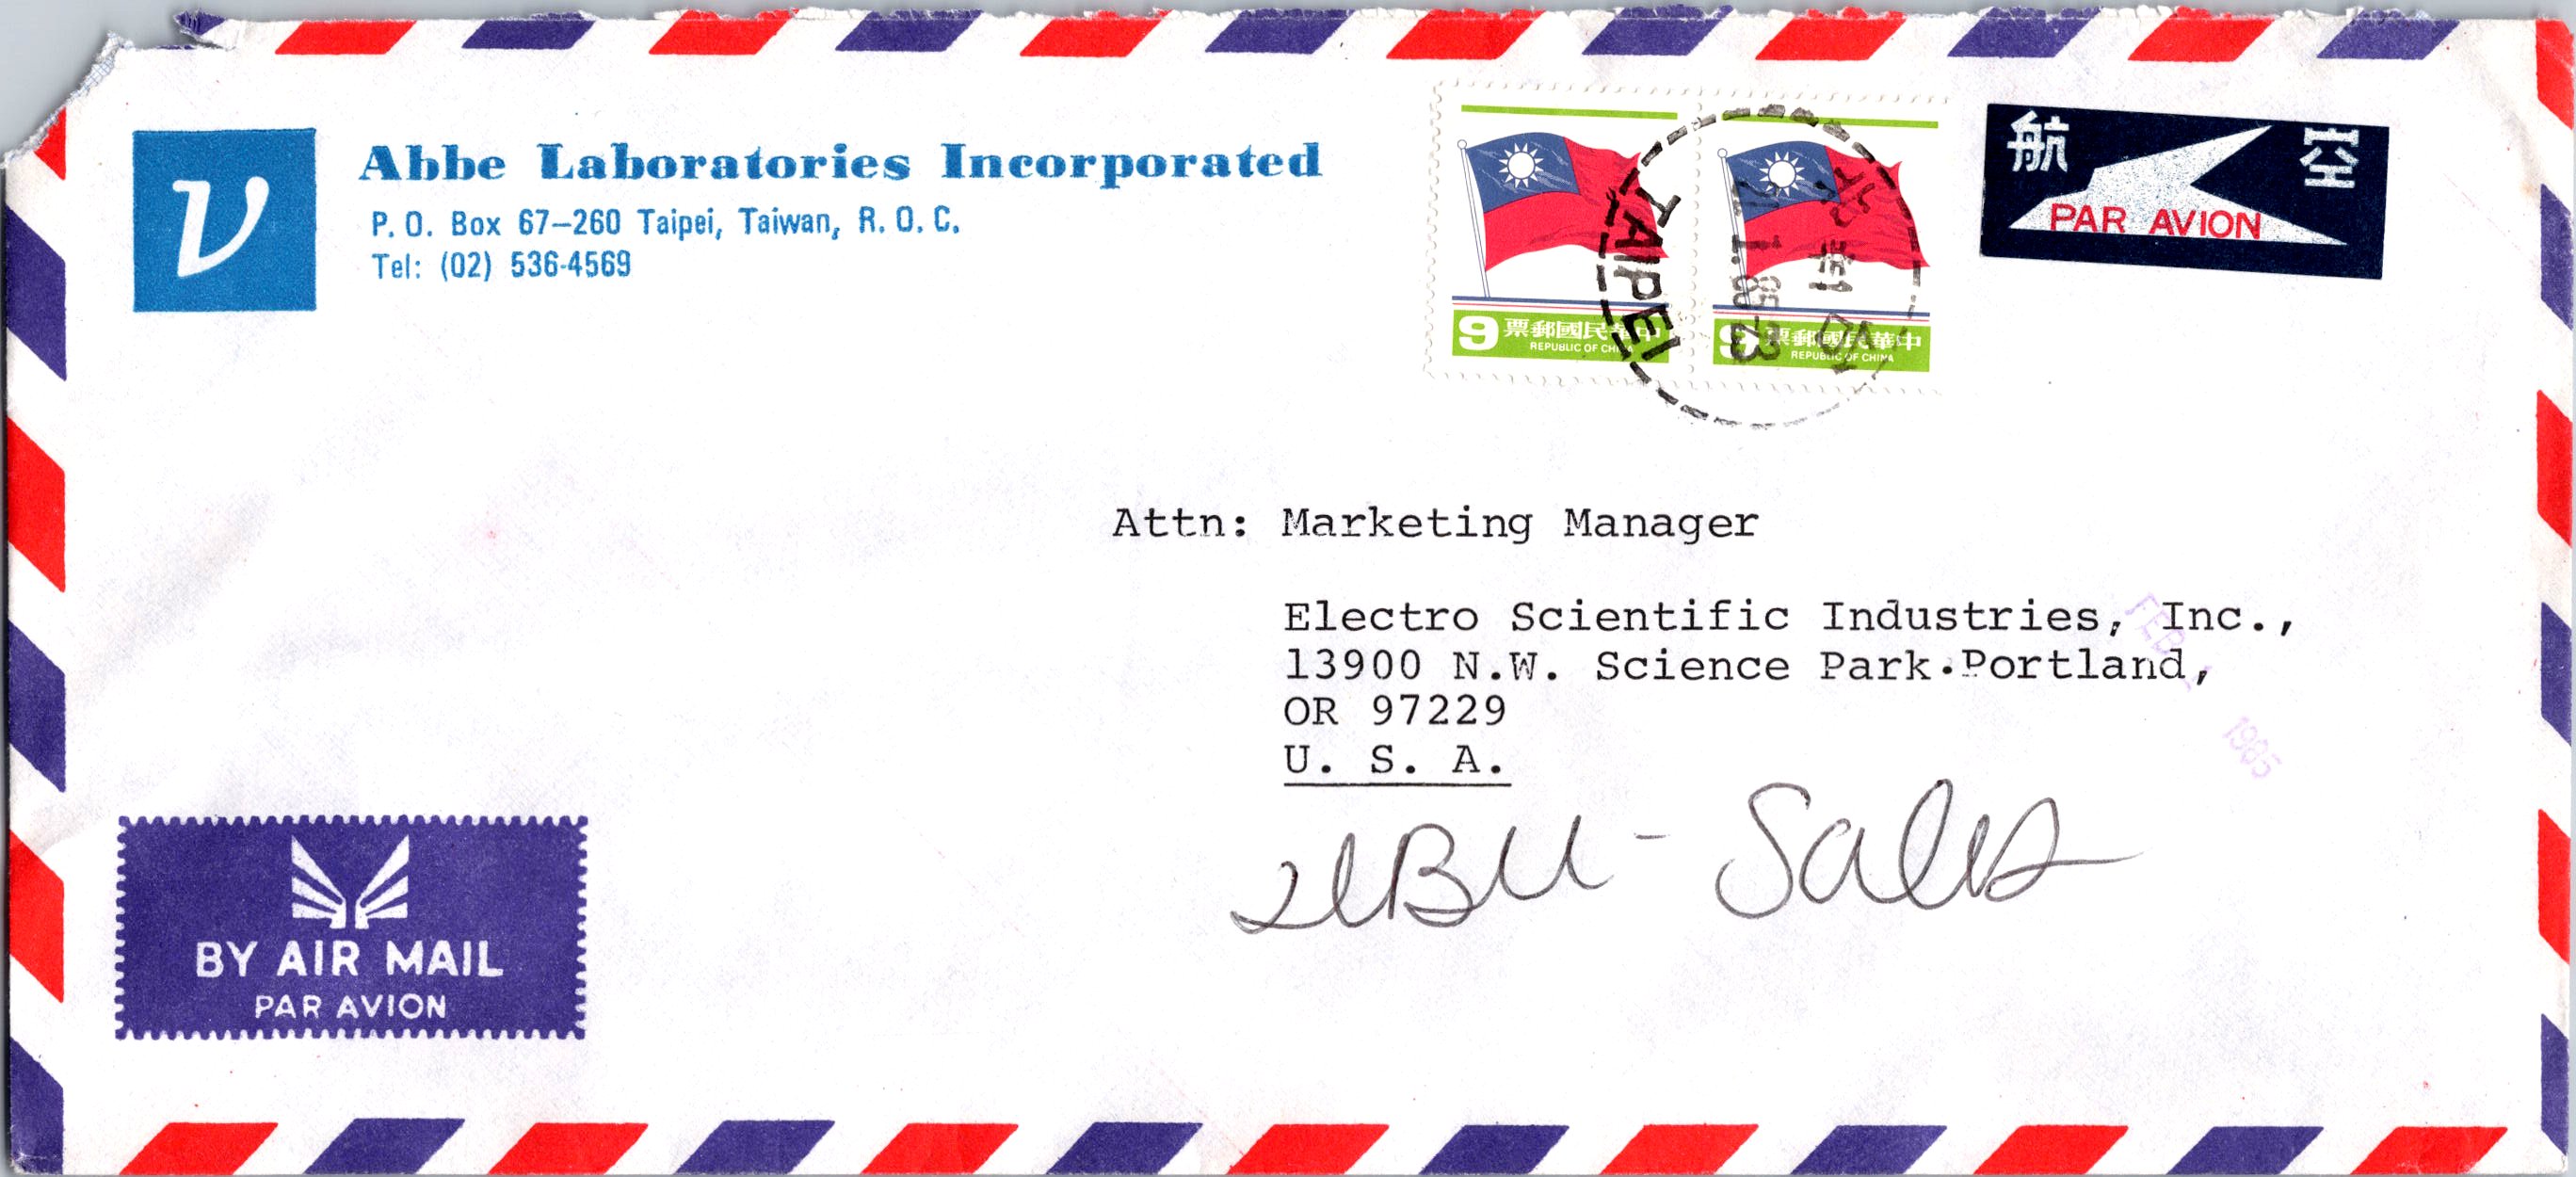 ν
Abbe Laboratories Incorporated
P. O. Box 67-260 Taipei, Taiwan, R. O. C.
Tel: (02) 536-4569
9 票郵國民華中
REPUBLIC OF CHINA
9 票郵國民華中
REPUBLIC OF CHINA
TAIPEI
航空
PAR AVION
Attn: Marketing Manager
Electro Scientific Industries, Inc.,
13900 N.W. Science Park·Portland,
OR 97229
U. S. A.
FEB 1 1985
Sales
BY AIR MAIL
PAR AVION